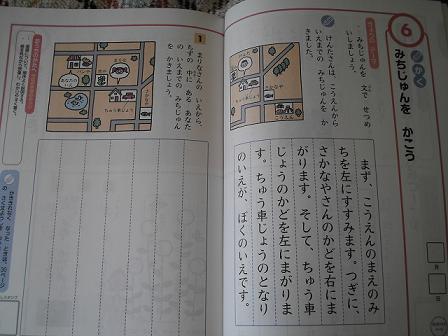 6
かく
みちじゅんを かこう
みちじゅんを 文で せつめ
いしましょう。
けんたさんは、こうえんから
いえまでの みちじゅんを か
きました。
まず、こうえんのまえのみ
ちを左にすすみます。つぎに、
さかなやさんのかどを右にま
がります。そして、ちゅう車
じょうのかどを左にまがりま
す。ちゅう車じょうのとなり
のいえが、ぼくのいえです。
月
日
1
まりなさんの いえから、
ちずの 中に ある あなた
の いえまでの みちじゅん
を かきましょう。
あなたの
いえ
ちゅう車じょう